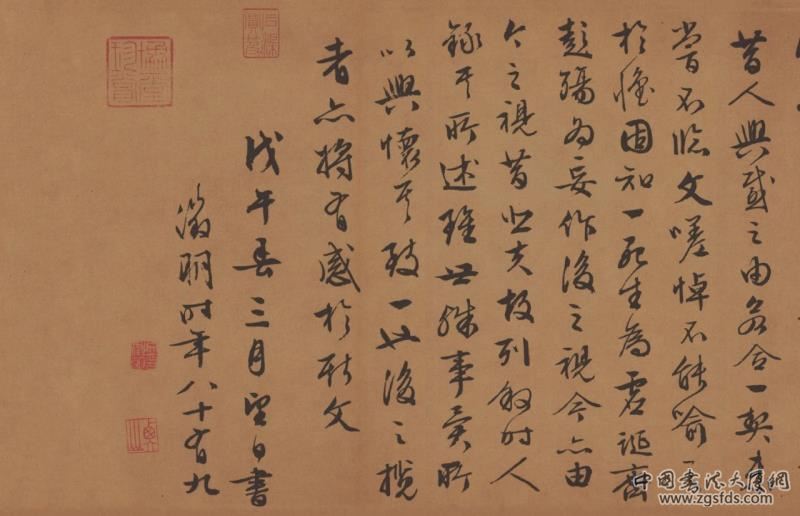 昔人興感之由若合一契未
嘗不臨文嗟悼不能喻
於懷固知一死生為虛誕齊
彭殤為妄作後之視今亦由
今之視昔悲夫故列敘時人
錄其所述雖世殊事異所
以興懷其致一也後之攬
者亦將有感於斯文
戊午春三月望日書
徵明時年八十有九
中國書法大廈網
www.zgsfds.com